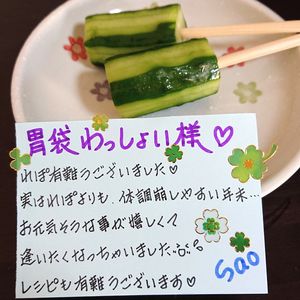 胃袋わっしょい様♡
れぽ有難うございました♡
実はれぽよりも、体調崩しやすい年末…
お元気そうな事が嬉しくて
逢いたくなっちゃいました
レシピも有難うございます♡
sao